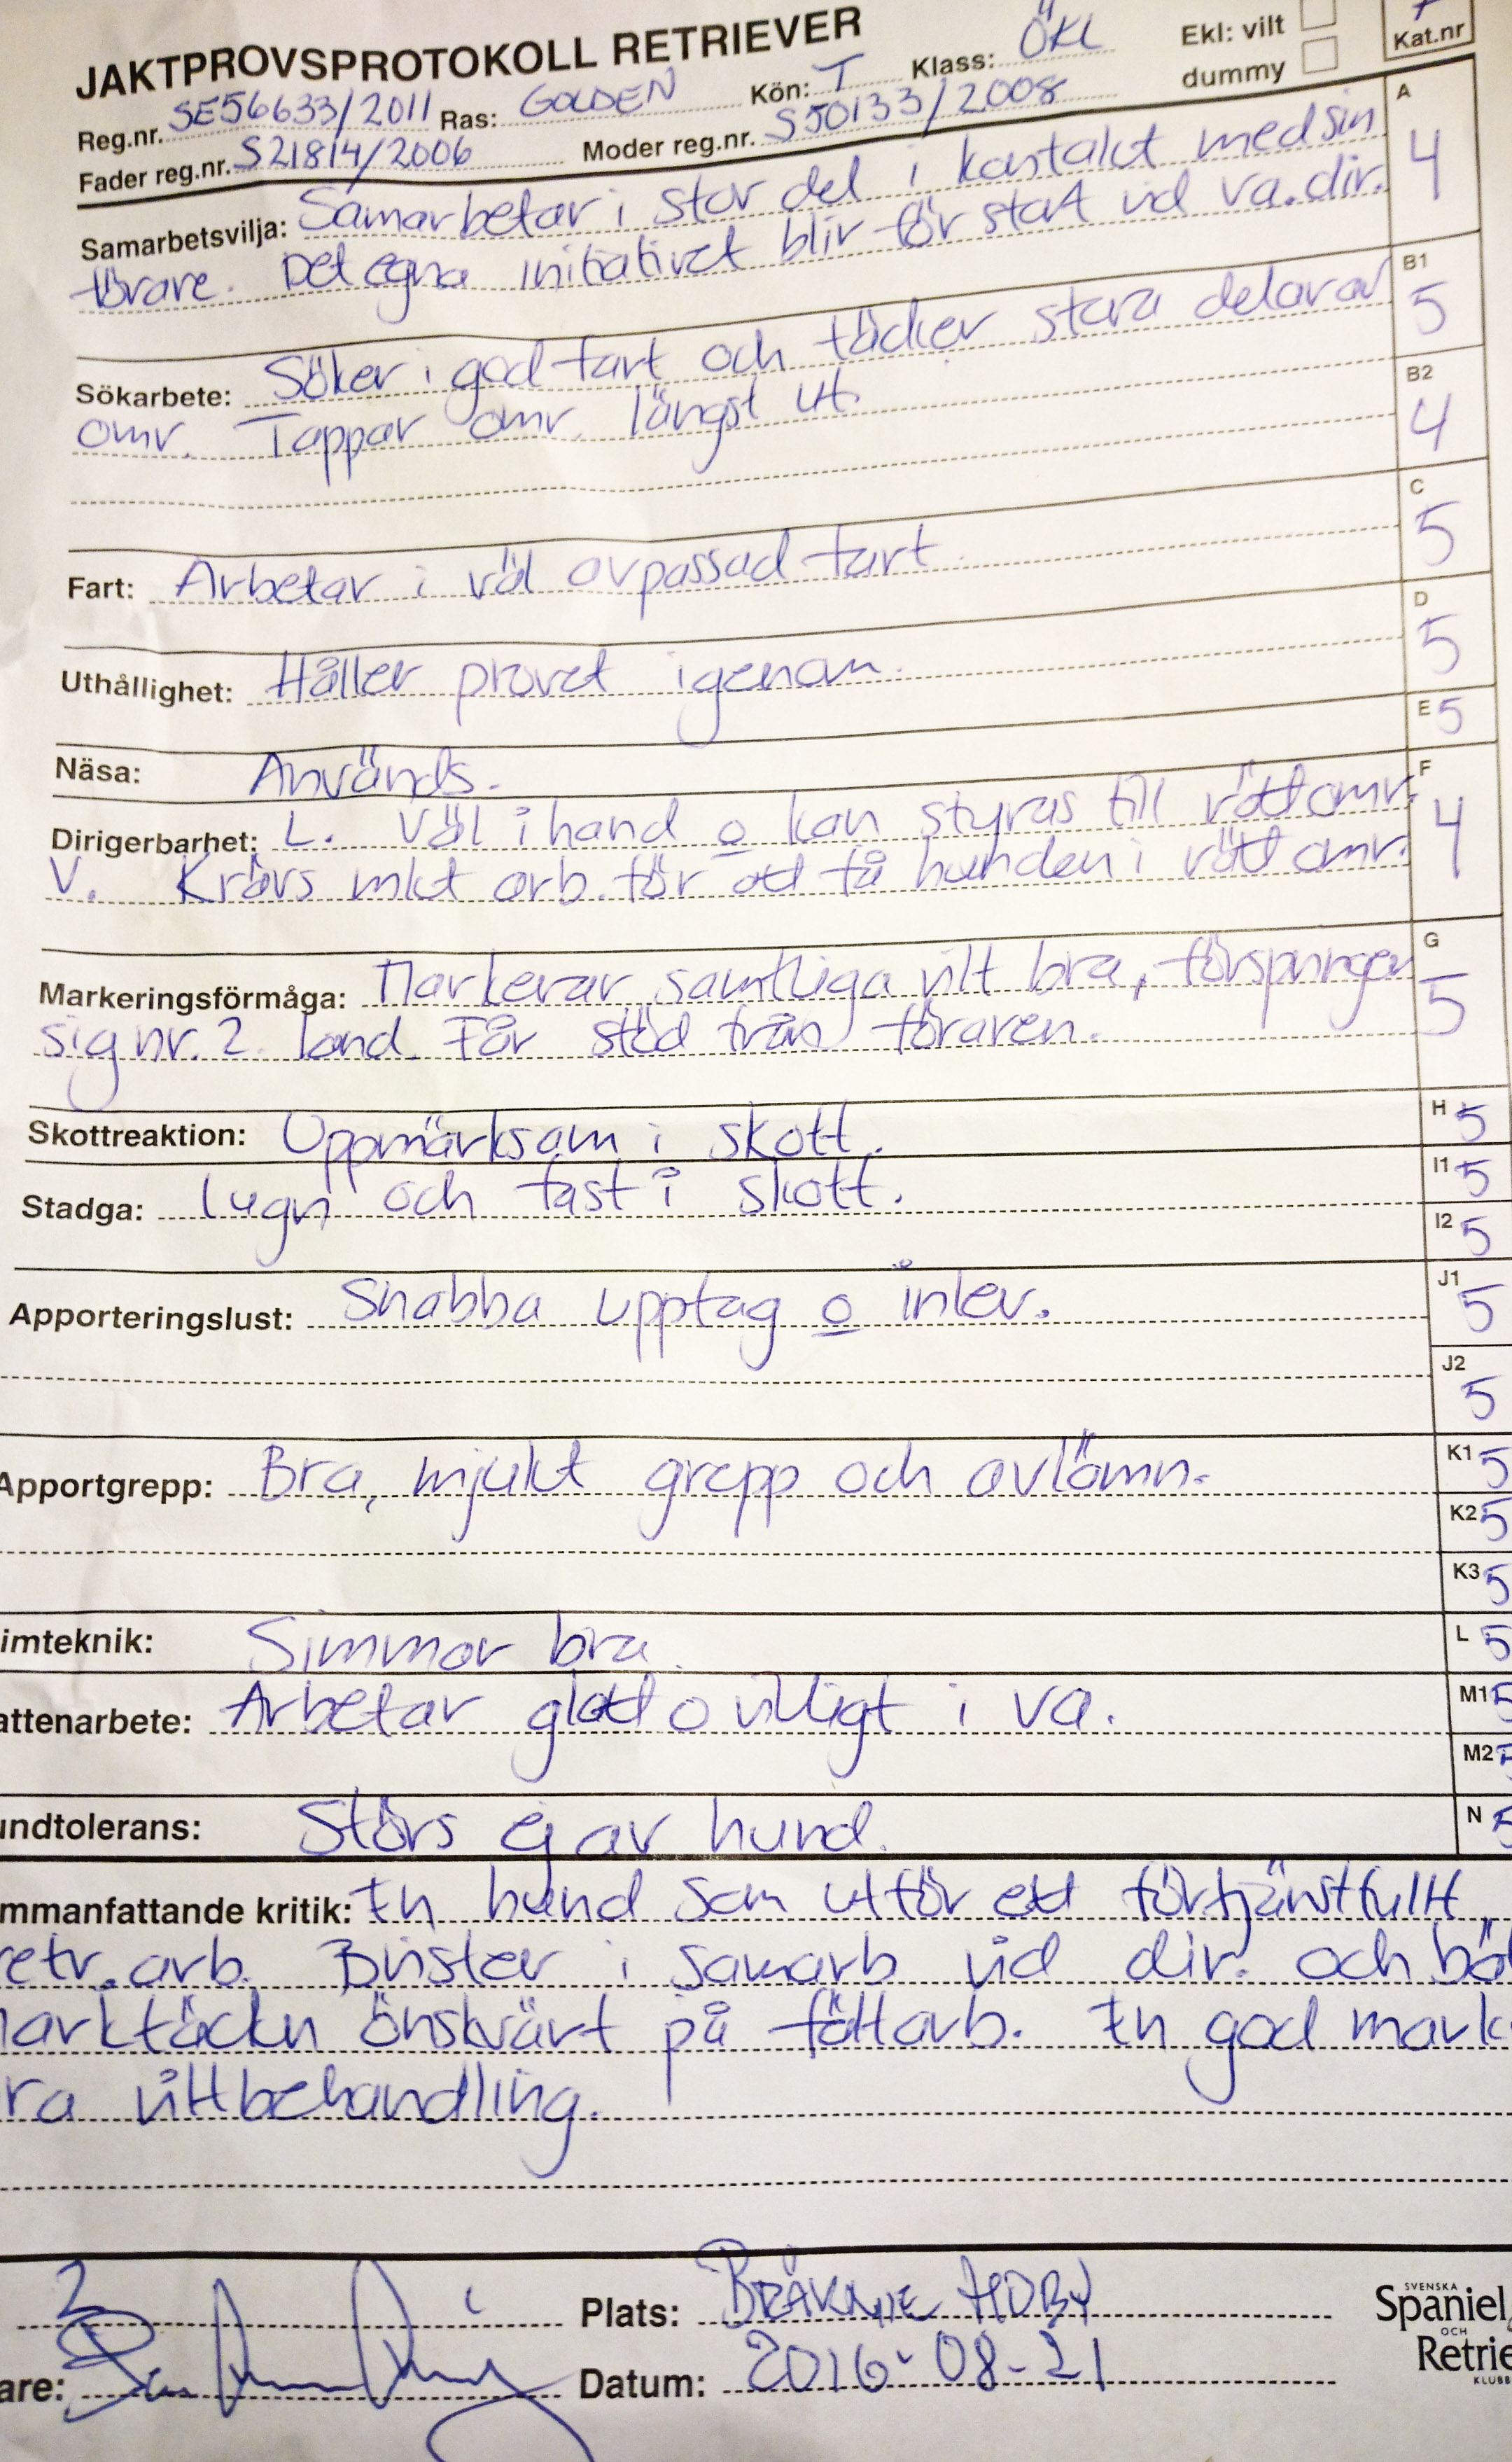 JAKTPROVSPROTOKOLL RETRIEVER
Reg.nr. SE56633/2011 Ras: GOLDEN Kön: T Klass: ÖKL Ekl: vilt
dummy
Kat.nr
Fader reg.nr. S21814/2006 Moder reg.nr. S50133/2008
Samarbetsvilja: Samarbetar i stor del i kontakt med sin A 4
förare. Det egna initiativet blir för stort vid va.dir.
Sökarbete: Söker i god fart och täcker stora delar av B1 5
omr. Tappar omr. längst ut. B2 4
Fart: Arbetar i väl avpassad fart. C 5
Uthållighet: Håller provet igenom. D 5
Näsa: Används. E 5
Dirigerbarhet: L. Väl i hand o kan styras till rätt omr. F 4
V. Krävs mkt arb. för att få hunden i rätt omr.
Markeringsförmåga: Markerar samtliga vilt bra, förspringer G 5
sig nr. 2. land. Får stöd från föraren.
Skottreaktion: Uppmärksam i skott. H 5
Stadga: Lugn och fast i skott. I1 5
I2 5
Apporteringslust: Snabba upptag o inlev. J1 5
J2 5
Apportgrepp: Bra, mjukt grepp och avlämn. K1 5
K2 5
K3 5
imteknik: Simmar bra. L 5
attenarbete: Arbetar glatt o villigt i va. M1 5
M2 5
undtolerans: Störs ej av hund. N 5
mmanfattande kritik: En hund som utför ett förtjänstfullt
retr. arb. Brister i samarb vid dir. och bät
marktäckn önskvärt på fältarb. En god mark
ra viltbehandling.
2 Plats: BRÄKNE HOBY
are: Datum: 2016-08-21
SVENSKA
Spaniel
OCH
Retrie
KLUBB